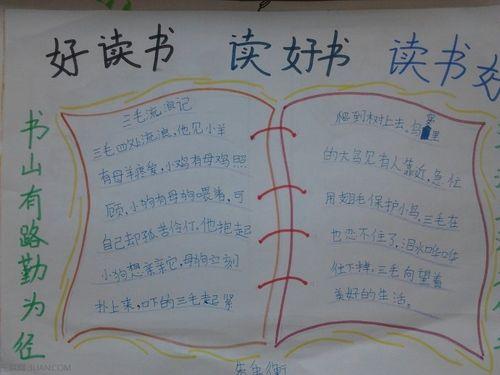 好读书 读好书 读书好
书山有路勤为径
三毛流浪记
三毛四处流浪,他见小羊
有母羊疼爱,小鸡有母鸡照
顾,小狗有母狗喂着,可
自己却孤苦伶仃,他抱起
小狗想亲亲它,母狗立刻
扑上来,吓的三毛赶紧
爬到树上去,鸟窝里
的大鸟见有人靠近,急忙
用翅毛保护小鸟,三毛在
也忍不住了,泪水哗哗
往下掉,三毛向望着
美好的生活。